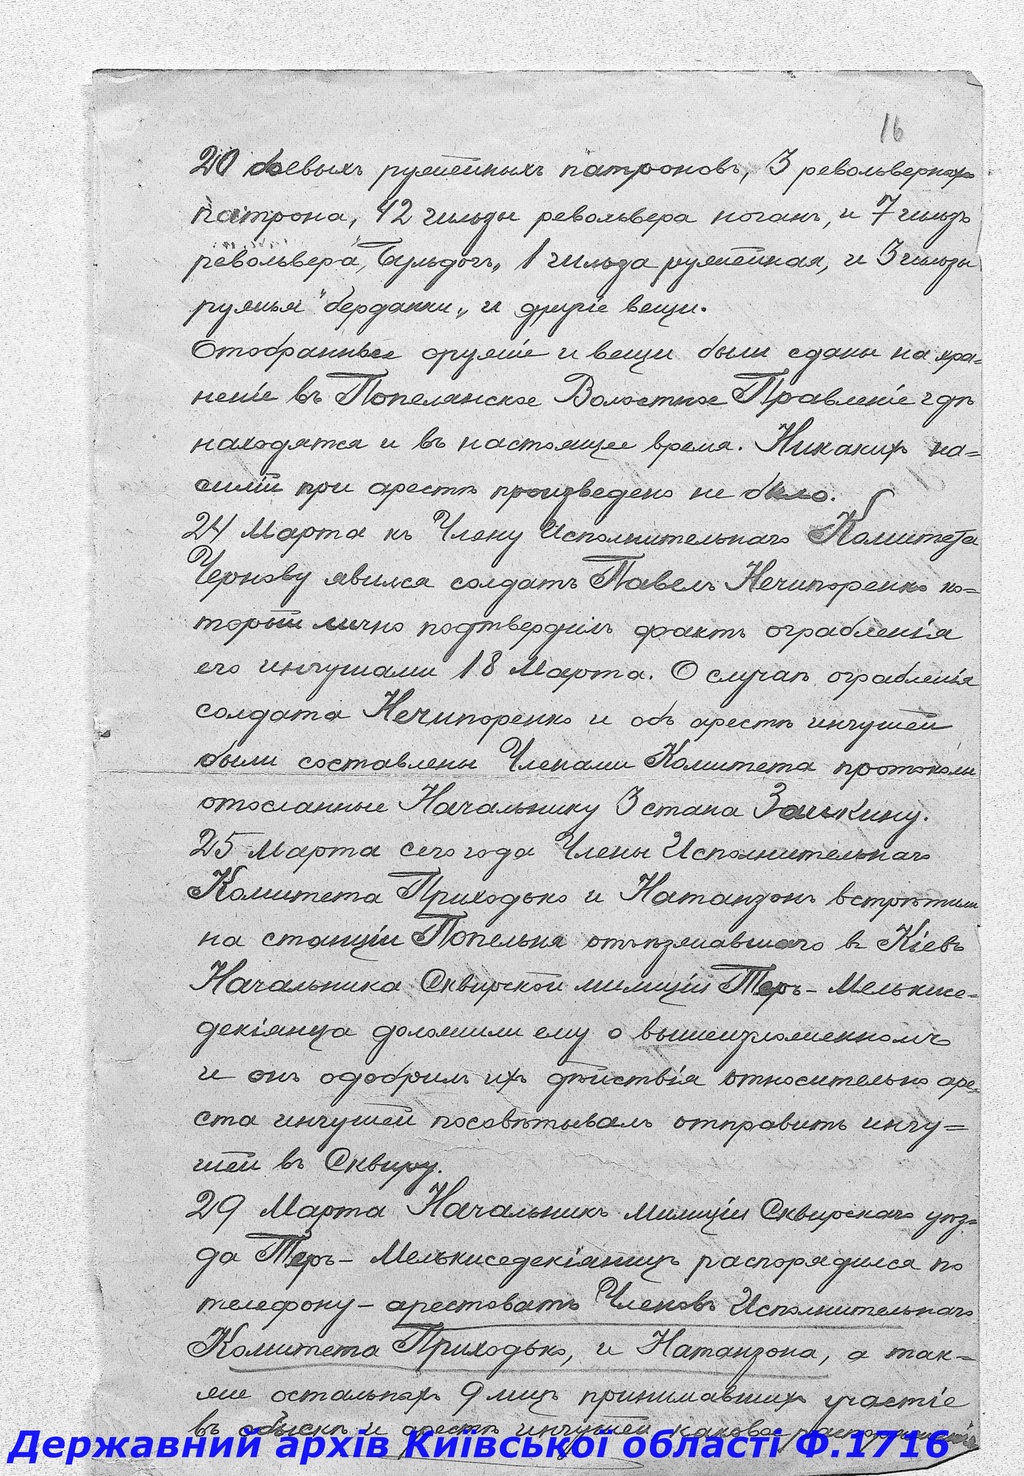 16
20 боевыхъ ружейныхъ патроновъ, 3 револьверныхъ
патрона, 42 гильзы револьвера наганъ, и 7 гильзъ
револьвера „Бульдогъ„ 1 гильза ружейная, и 3 гильзы
ружья "берданки„ и другіе вещи.
Отобранные оружіе и вещи были сданы на хра-
неніе въ Попелянское Волостное Правленіе гдѣ
находятся и въ настоящее время. Никакихъ на-
силій при арестѣ произведено не было.
24 Марта къ Члену Исполнительнаго Комитета
Чернову явился солдатъ Павелъ Нечипоренко ко-
торый лично подтвердилъ фактъ ограбленія
его ингушами 18 Марта. О случаѣ ограбленія
солдата Нечипоренко и объ арестѣ ингушей
были составлены Членами Комитета протоколы
отосланные Начальнику 3 стана Заикину.
25 Марта сего года Члены Исполнительнаго
Комитета Приходько и Натанзонъ встрѣтили
на станціи Попельня отъѣзжавшаго въ Кіевъ
Начальника Сквирской милиціи Теръ-Мелькисе-
декіянца доложили ему о вышеизложенномъ
и онъ одобрилъ ихъ дѣйствія относительно аре-
ста ингушей посовѣтывалъ отправить ингу-
шей въ Сквиру.
29 Марта Начальникъ милиціи Сквирскаго уѣз-
да Теръ-Мелькиседекіянцъ распорядился по
телефону - арестовать Членовъ Исполнительнаго
Комитета Приходько, и Натанзона, а так-
же остальныхъ 9 лицъ принимавшихъ участіе
въ обыскѣ и арестѣ ингушей каковое
Державний архів Київської області Ф.1716